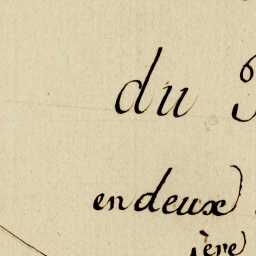 du
en deux
ière